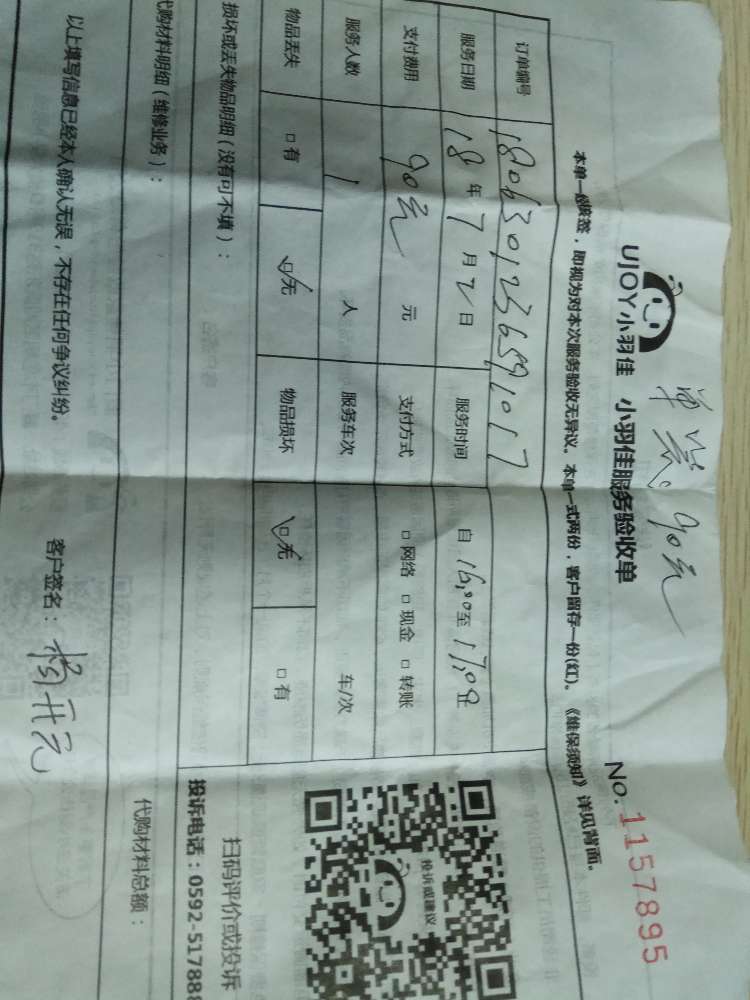 单 90元
UJOY小羽佳 小羽佳服务验收单
No. 1157895
本单一经核签，即视为对本次服务验收无异议。本单一式两份，客户留存一份(红)。《维保须知》详见背面。
订单编号 1806301236591017
服务日期 18 年 7 月 2 日 服务时间 自 16:00 至 17:00止
支付费用 90元 元 支付方式 □ 网络 □ 现金 □ 转账
服务人数 1 人 服务车次 车/次
物品丢失 □ 有 ☑无 物品损坏 ☑无 □ 有
损坏或丢失物品明细（没有可不填）：
投诉或建议
扫码评价或投诉
投诉电话：0592-517888
代购材料明细（维修业务）： 代购材料总额：
以上填写信息已经本人确认无误，不存在任何争议纠纷。 客户签名：杨开元